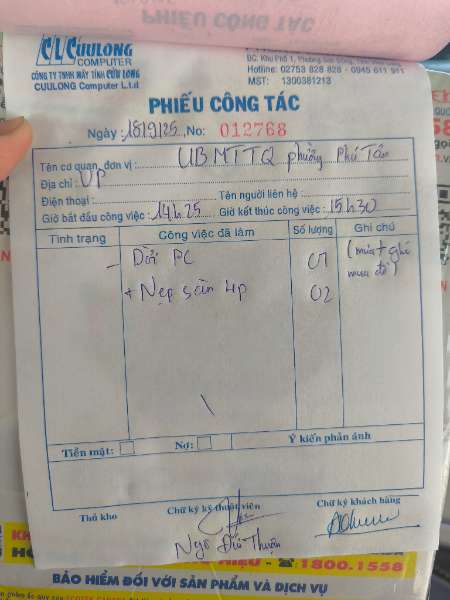 PHIẾU CÔNG TÁC
CLCUULONG
COMPUTER
CÔNG TY TNHH MÁY TÍNH CỬU LONG
CUULONG Computer L.t.d
ĐC. Khu Phố 1, Phường
Hotline: 02753 828 828 - 0945 611 911
MST: 1300381213
PHIẾU CÔNG TÁC
Ngày: 18/9/25, No: 012768
Tên cơ quan, đơn vị: UBMTTQ phường Phú Tân
Địa chỉ: VP
Điện thoại: Tên người liên hệ:
Giờ bắt đầu công việc: 14h25 Giờ kết thúc công việc: 15h30
Tình trạng Công việc đã làm Số lượng Ghi chú
- Dời PC 01 (mưa + ghé mua đồ)
+ Nẹp sàn 4p 02
Tiền mặt: Nợ: Ý kiến phản ánh
Thủ kho Chữ ký kỹ thuật viên Chữ ký khách hàng
Ngô Đức Thuận
1800.1558
BẢO HIỂM ĐỐI VỚI SẢN PHẨM VÀ DỊCH VỤ